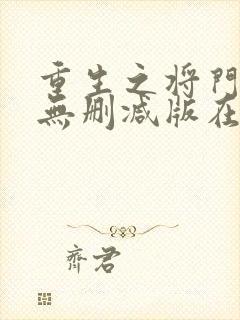 重生之将門
無刪減版在
齊君